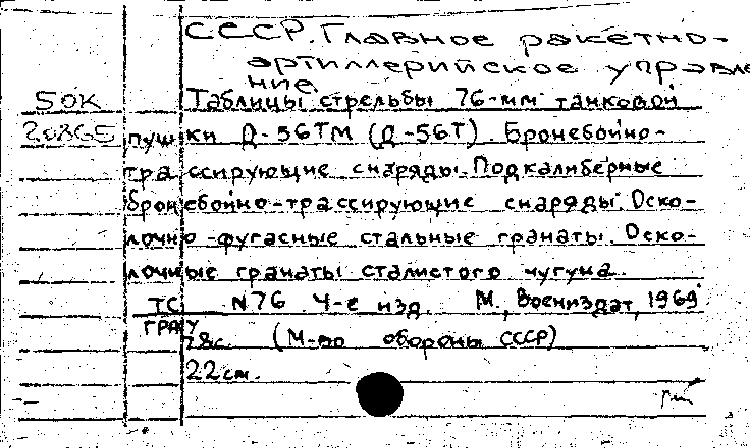 СССР. Главное ракетно-
артиллерийское управле
ние
50К Таблицы стрельбы 76-мм танковой
пушки Д-56ТМ (Д-56Т) Бронебойно-
трассирующие снаряды. Подкалиберные
бронебойно-трассирующие снаряды. Оско-
лочно-фугасные стальные гранаты. Оско-
лочные гранаты сталистого чугуна.
ТС N76 4-е изд. М., Воениздат, 1969
ГРАУ
78с. (М-во обороны СССР)
22см.